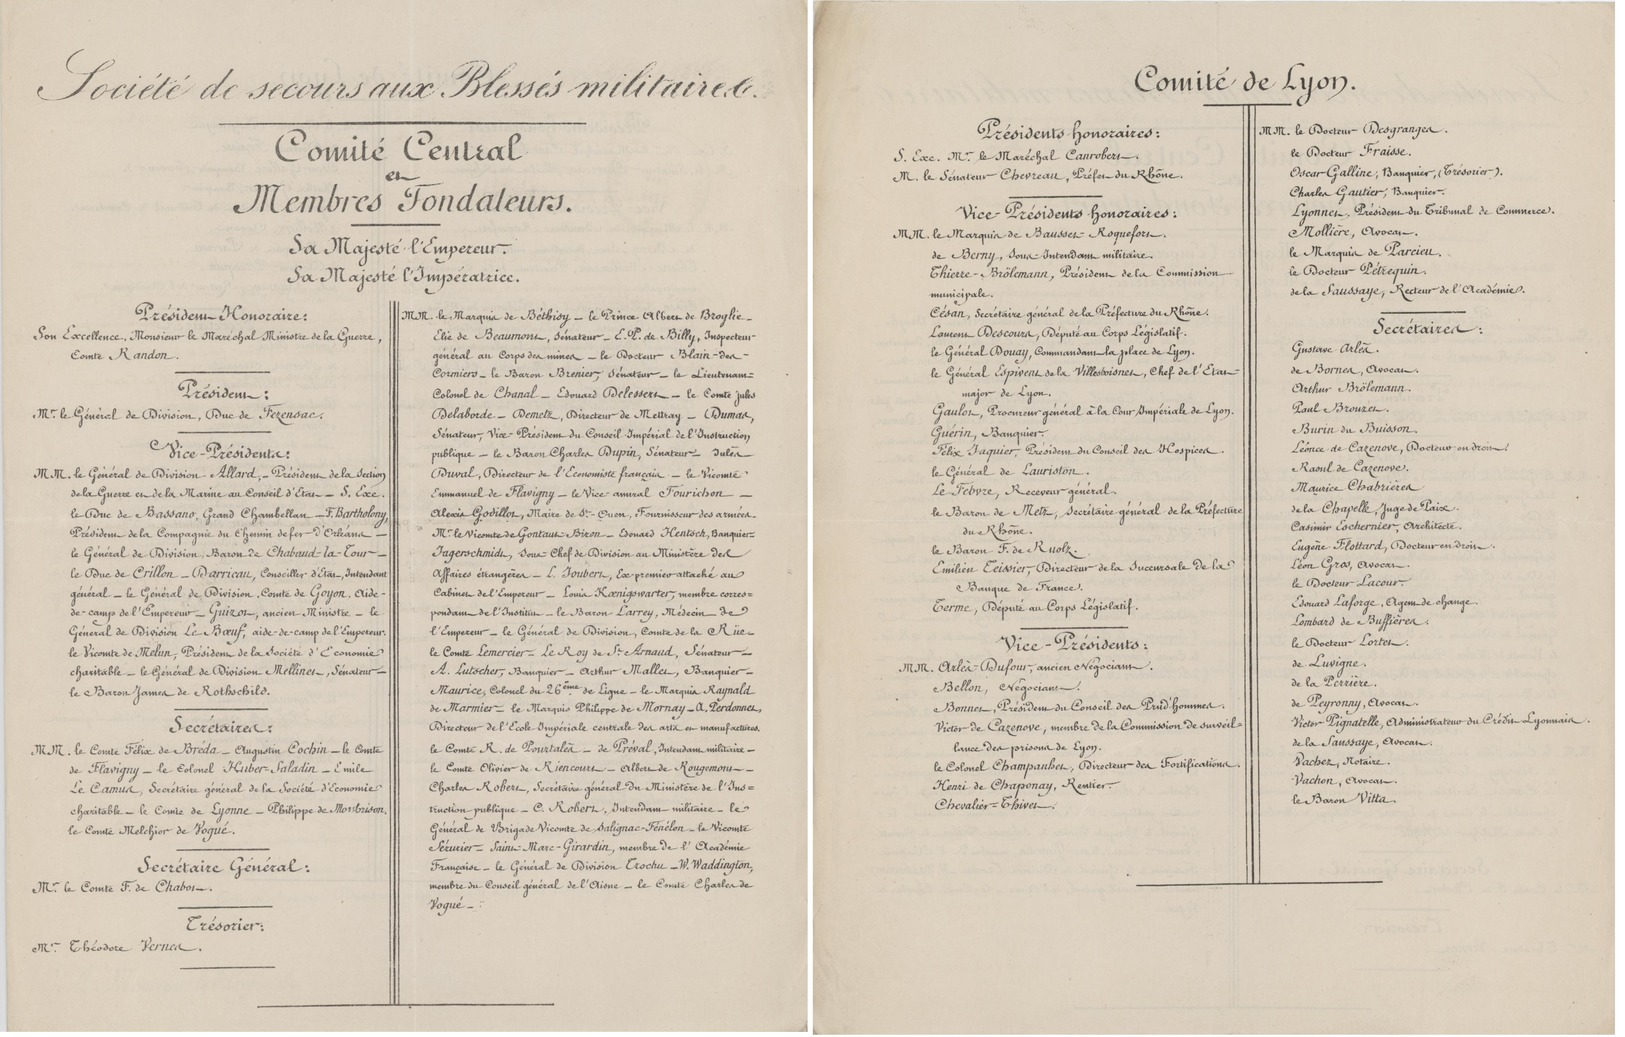 Société de secours aux Blessés militaires.
Comité Central
et
Membres Fondateurs.
Sa Majesté l'Empereur.
Sa Majesté l'Impératrice.
Président Honoraire:
Son Excellence, Monsieur le Maréchal Ministre de la Guerre,
Comte Randon.
Président:
Mr. le Général de Division, Duc de Fezensac.
Vice-Présidents:
MM. le Général de Division Allard, Président de la Section
de la Guerre et de la Marine au Conseil d'Etat – S. Exc.
le Duc de Bassano, Grand Chambellan – F. Bartholony,
Président de la Compagnie du Chemin de fer d'Orléans –
le Général de Division, Baron de Chabaud-la-Tour –
le Duc de Crillon – Darricau, Conseiller d'Etat, Intendant
général – le Général de Division, Comte de Goyon, Aide-
de-camp de l'Empereur – Guizot, ancien Ministre – le
Général de Division Le Bœuf, aide-de-camp de l'Empereur.
le Vicomte de Melun, Président de la Société d'Economie
charitable – le Général de Division Mellinet, Sénateur –
le Baron James de Rothschild.
Secrétaires:
MM. le Comte Félix de Bréda – Augustin Cochin – le Comte
de Flavigny – le Colonel Huber-Saladin – Emile
Le Camus, Secrétaire général de la Société d'Economie
charitable – le Comte de Lyonne – Philippe de Montbrison,
le Comte Melchior de Vogué.
Secrétaire Général:
Mr. le Comte F. de Chabot.
Trésorier:
Mr. Théodore Vernes.
MM. le Marquis de Béthisy – le Prince Albert de Broglie –
Elie de Beaumont, Sénateur – E. P. de Billy, Inspecteur
général au Corps des mines – le Docteur Blain-des-
Cormiers – le Baron Brenier, Sénateur – le Lieutenant=
Colonel de Chanal – Edouard Delessert – le Comte Jules
Delaborde – Demetz, Directeur de Mettray – Dumas,
Sénateur, Vice-Président du Conseil Impérial de l'Instruction
publique – le Baron Charles Dupin, Sénateur – Jules
Duval, Directeur de l'Economiste français – le Vicomte
Emmanuel de Flavigny – le Vice amiral Fourichon –
Alexis Godillot, Maire de St-Ouen, Fournisseur des armées.
Mr. le Vicomte de Gontaut-Biron – Edouard Hentsch, Banquier –
Jagerschmidt, Sous-Chef de Division au Ministère des
Affaires étrangères – L. Joubert, Ex-premier attaché au
Cabinet de l'Empereur – Louis Kœnigswarter, membre corres=
pondant de l'Institut – le Baron Larrey, Médecin de
l'Empereur – le Général de Division, Comte de la Rüe –
le Comte Lemercier – Le Roy de St. Arnaud, Sénateur –
A. Lutscher, Banquier – Arthur Mallet, Banquier –
Maurice, Colonel du 26ème de Ligne – le Marquis Raynald
de Marmier – le Marquis Philippe de Mornay – A. Perdonnet,
Directeur de l'Ecole Impériale centrale des arts et manufactures.
le Comte R. de Pourtalès – de Préval, Intendant militaire –
le Comte Olivier de Riencourt – Albert de Rougemont –
Charles Robert, Secrétaire général du Ministère de l'Ins=
truction publique – C. Robert, Intendant militaire – le
Général de Brigade Vicomte de Salignac-Fénélon – le Vicomte
Sérurier – Saint-Marc-Girardin, membre de l'Académie
Française – le Général de Division Trochu – W. Waddington,
membre du Conseil général de l'Aisne – le Comte Charles de
Vogué –
Comité de Lyon.
Présidents honoraires:
S. Exc. Mr. le Maréchal Canrobert.
M. le Sénateur Chevreau, Préfet du Rhône.
Vice-Présidents honoraires:
MM. le Marquis de Bausset-Roquefort.
de Berny, Sous-Intendant militaire.
Thierre-Brölemann, Président de la Commission
municipale.
César, Secrétaire général de la Préfecture du Rhône.
Laurent Descours, Député au Corps Législatif.
le Général Douay, Commandant la place de Lyon.
le Général Espivent de la Villesboisnet, Chef de l'Etat=
major de Lyon.
Gaulot, Procureur général à la Cour Impériale de Lyon.
Guérin, Banquier.
Félix Jaquier, Président du Conseil des Hospices.
le Général de Lauriston.
Le Febvre, Receveur général.
le Baron de Metz, Secrétaire général de la Préfecture
du Rhône.
le Baron F. de Ruolz.
Emilien Teissier, Directeur de la Succursale de la
Banque de France.
Terme, Député au Corps Législatif.
Vice-Présidents:
MM. Arlès-Dufour, ancien Négociant.
Bellon, Négociant.
Bonnet, Président du Conseil des Prud'hommes.
Victor de Cazenove, membre de la Commission de surveil=
lance des prisons de Lyon.
le Colonel Champanhet, Directeur des Fortifications.
Henri de Chaponay, Rentier.
Chevalier-Thivet.
MM. le Docteur Desgranges.
le Docteur Fraisse.
Oscar Galline, Banquier, (Trésorier).
Charles Gautier, Banquier.
Lyonnet, Président du Tribunal de Commerce.
Mollière, Avocat.
le Marquis de Parcieu.
le Docteur Pétrequin.
de la Saussaye, Recteur de l'Académie.
Secrétaires:
Gustave Arlès.
de Bornes, Avocat.
Arthur Brölemann.
Paul Brouzet.
Burin du Buisson.
Léonce de Cazenove, Docteur en droit.
Raoul de Cazenove.
Maurice Chabrières
de la Chapelle, Juge de Paix.
Casimir Eschernier, Architecte.
Eugène Flottard, Docteur en droit.
Léon Gros, Avocat.
le Docteur Lacour.
Edouard Laforge, Agent de change.
Lombard de Buffières.
le Docteur Lortet.
de Luvigne.
de la Perrière.
de Peyronny, Avocat.
Victor Pignatelle, Administrateur du Crédit Lyonnais.
de la Saussaye, Avocat.
Vachez, Notaire.
Vachon, Avocat.
le Baron Vitta.